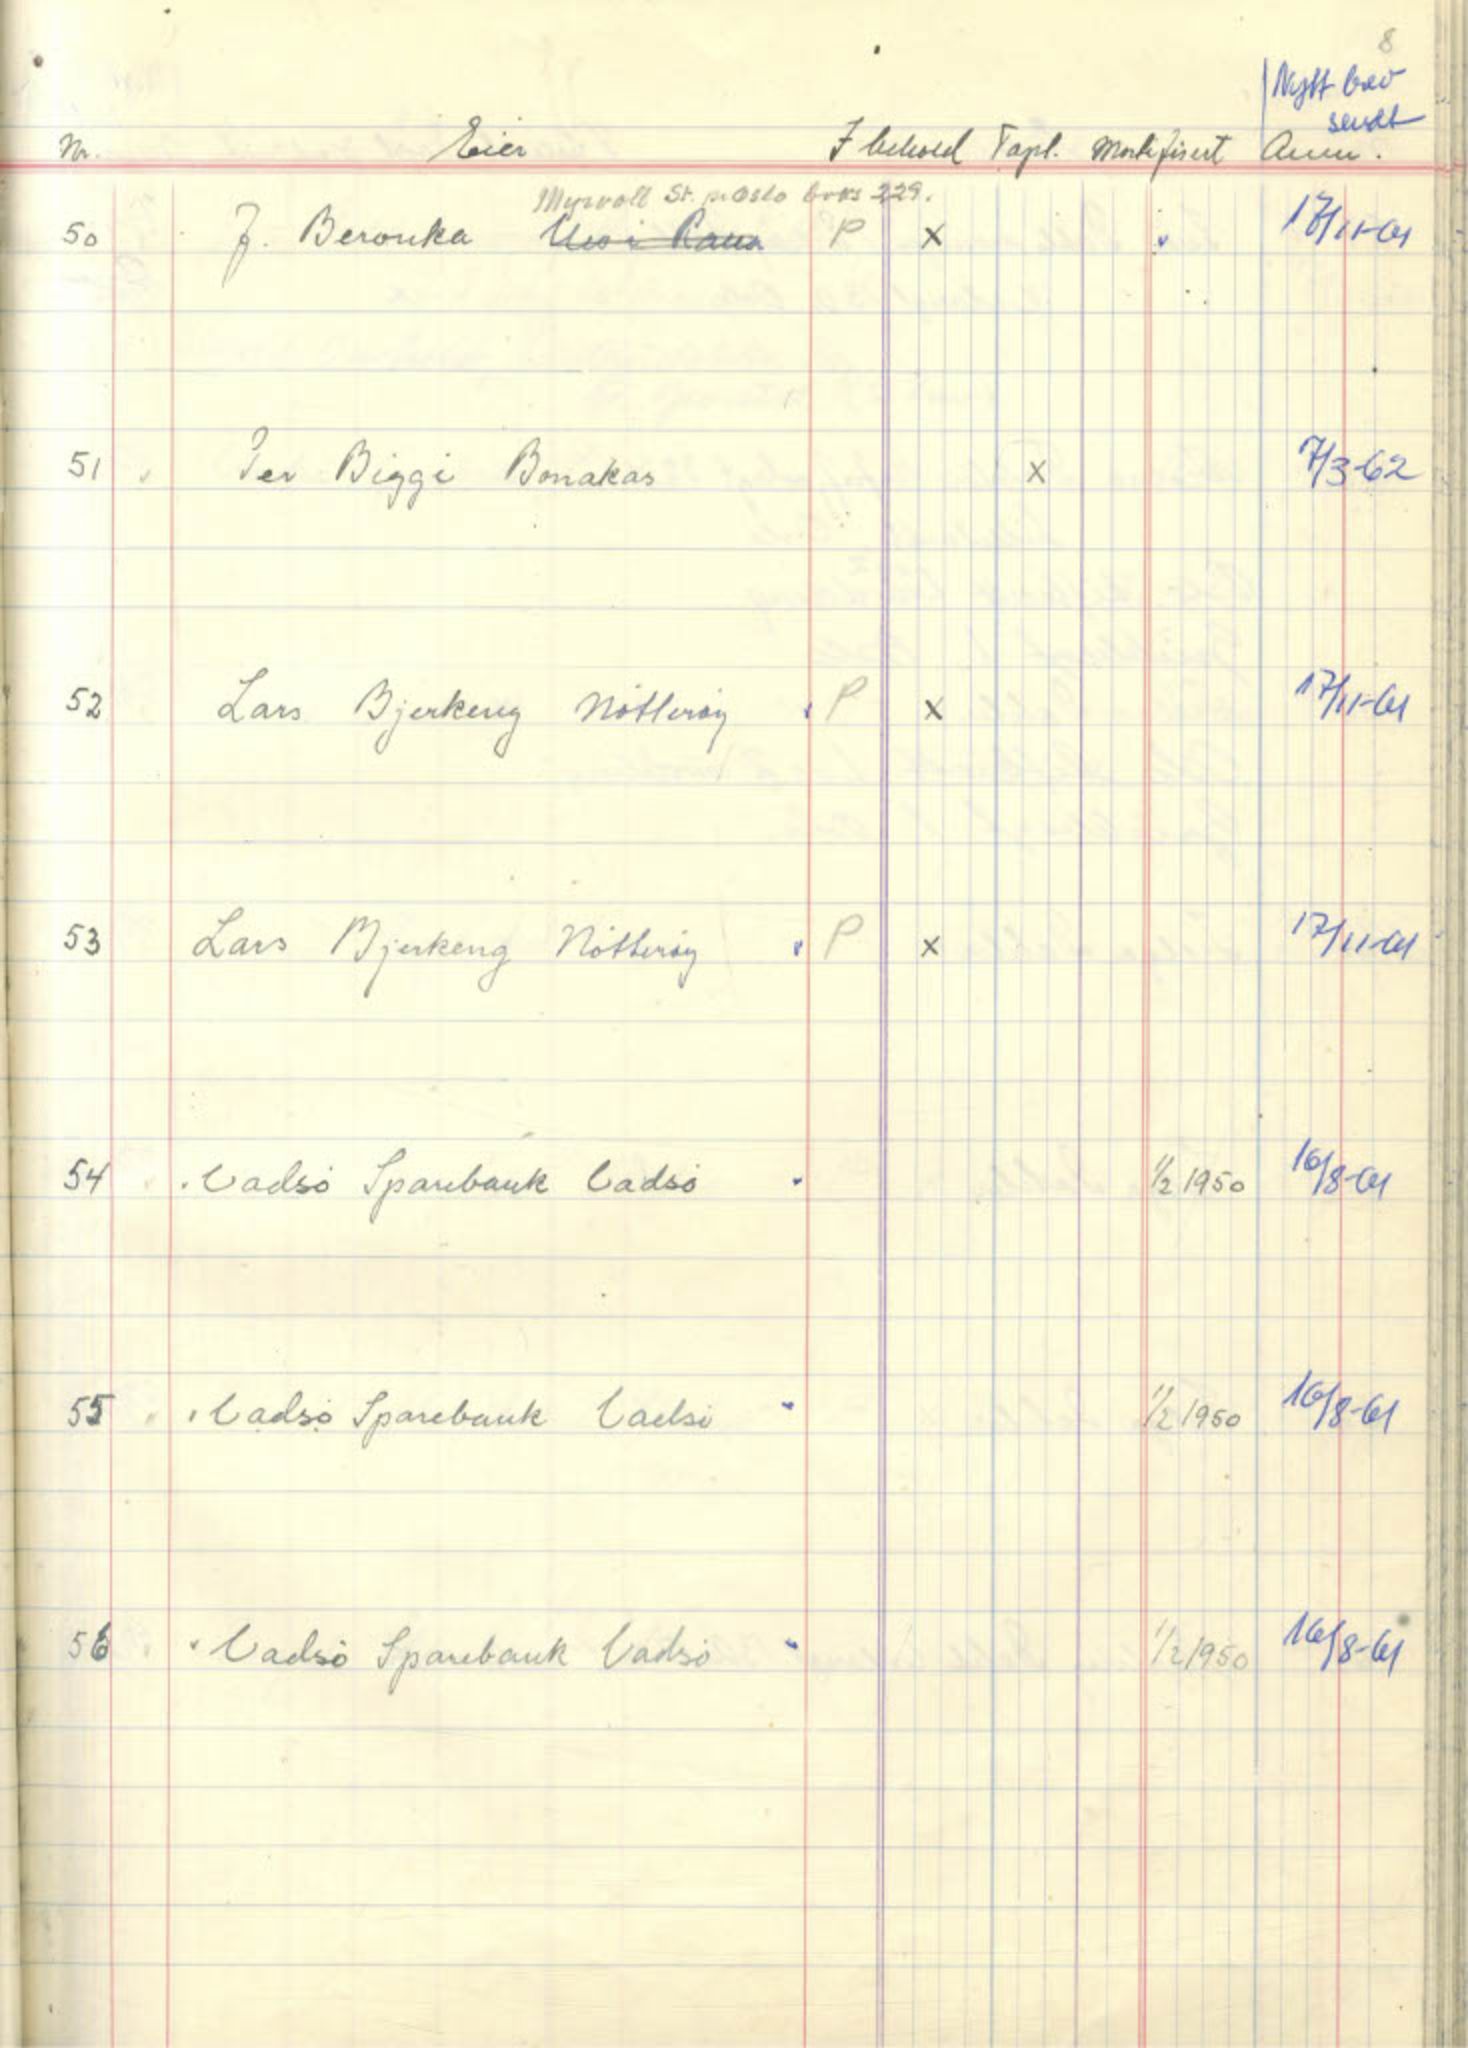 8
Nytt brev
sendt
Nr. Eier I behold Tapt. Mortifisert Anm.
Myrvoll St. pr Oslo boks 229.
50 J. Beronka Mo i Rana P x 17/11-61
51 Per Biggi Bonakas x 7/3-62
52 Lars Bjerkeng Nötteröy P x 17/11-61
53 Lars Bjerkeng Nötteröy P x 17/11-61
54 Vadsö Sparebank Vadsö 1/2 1950 16/8-61
55 Vadsö Sparebank Vadsö 1/2 1950 16/8-61
56 Vadsö Sparebank Vadsö 1/2 1950 16/8-61